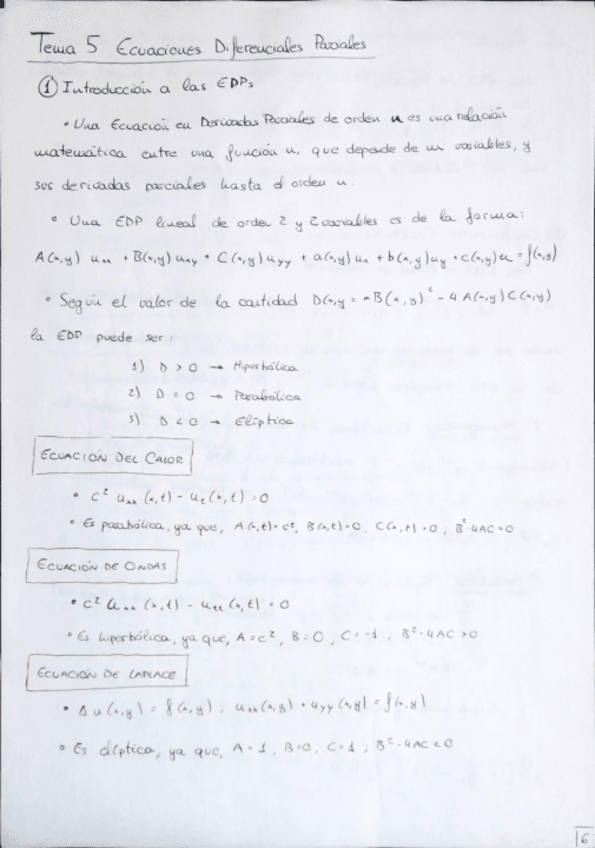 Tema 5 Ecuaciones Diferenciales Parciales
① Introducción a las EDPs
• Una Ecuación en Derivadas Parciales de orden n es una relación
matemática entre una función u, que depende de m variables, y
sus derivadas parciales hasta el orden n.
• Una EDP lineal de orden 2 y 2 variables es de la forma:
A(x,y) uxx + B(x,y) uxy + C(x,y) uyy + a(x,y) ux + b(x,y) uy + c(x,y) u = f(x,y)
• Según el valor de la cantidad D(x,y = B(x,y)² - 4 A(x,y) C(x,y)
la EDP puede ser:
1) D > 0 → Hiperbólica
2) D = 0 → Parabólica
3) D < 0 → Elíptica
ECUACIÓN DEL CALOR
• c² uxx (x,t) - ut (x,t) = 0
• Es parabólica, ya que, A(x,t)=c², B(x,t)=0, C(x,t)=0; B²-4AC=0
ECUACIÓN DE ONDAS
• c² uxx (x,t) - utt (x,t) = 0
• Es hiperbólica, ya que, A=c², B=0, C=-1; B²-4AC>0
ECUACIÓN DE LAPLACE
• Δu(x,y) = f(x,y); uxx(x,y) + uyy(x,y) = f(x,y)
• Es elíptica, ya que, A=1, B=0, C=1; B²-4AC<0
16